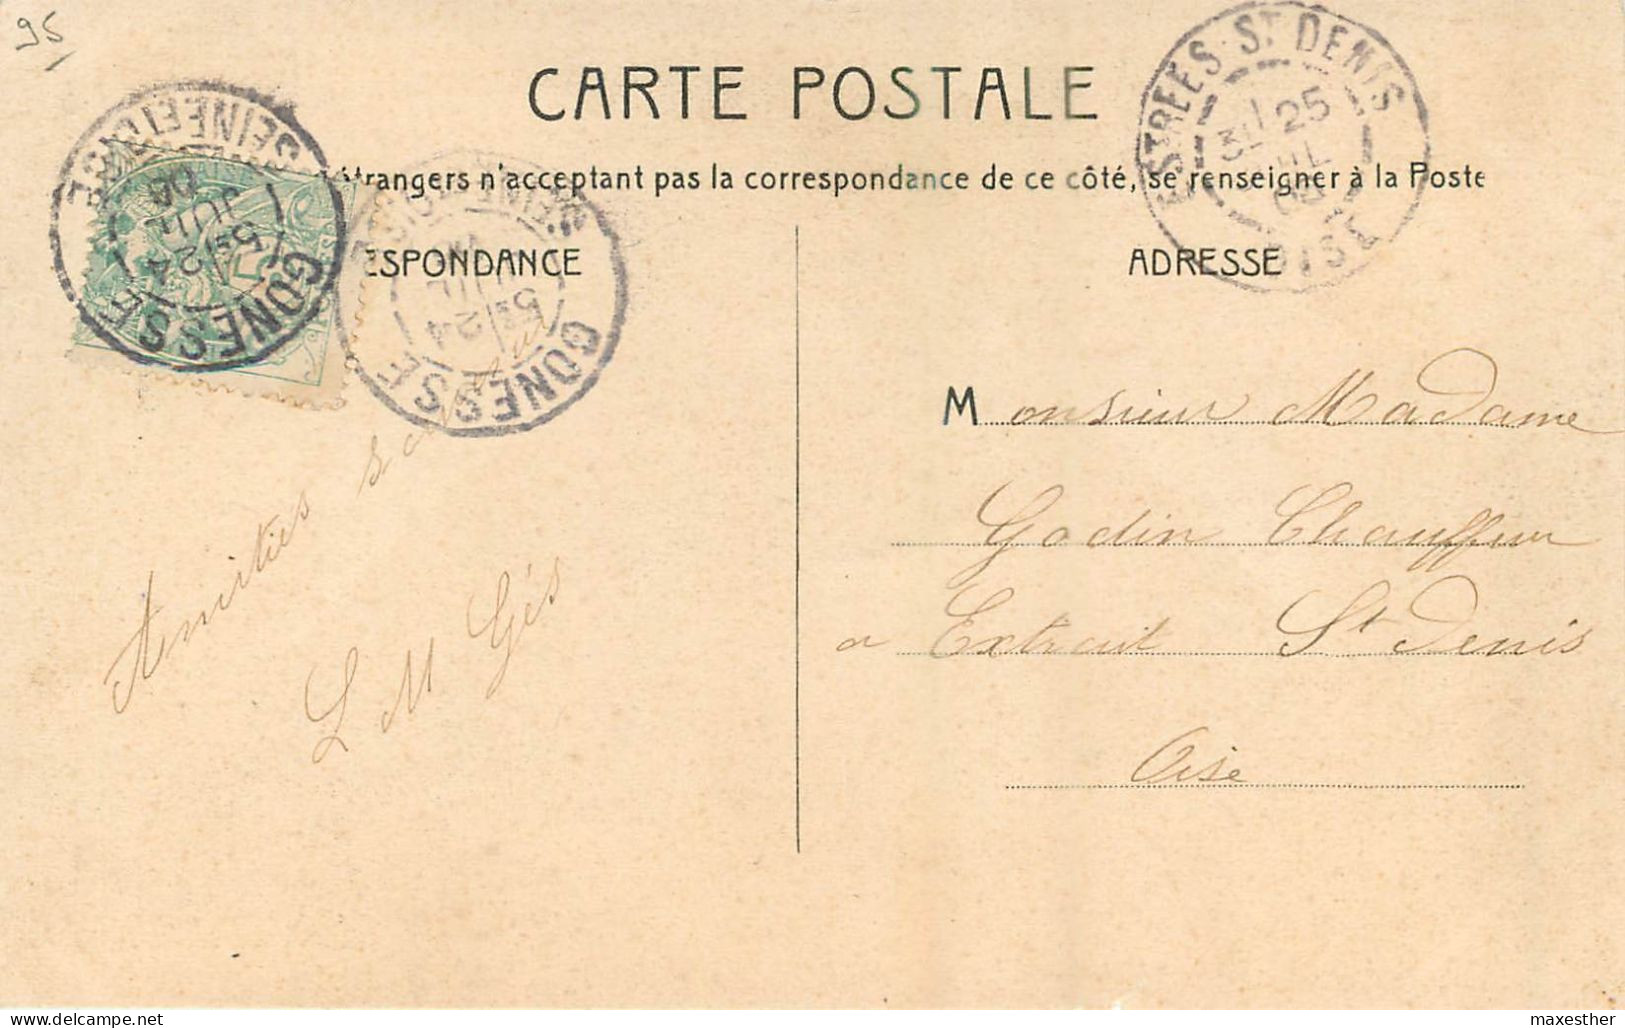 95
CARTE POSTALE
étrangers n'acceptant pas la correspondance de ce côté, se renseigner à la Poste
ESPONDANCE
ADRESSE
GONESSE
SEINE ET OISE
5E 24
JUIL
06
GONESSE
SEINE ET OISE
5E 24
ESTREES-ST DENIS
25
OISE
Monsieur Madame
Godin Chauffeur
a Extrait St Denis
Oise
Amitiés
L M Gés
maxesther